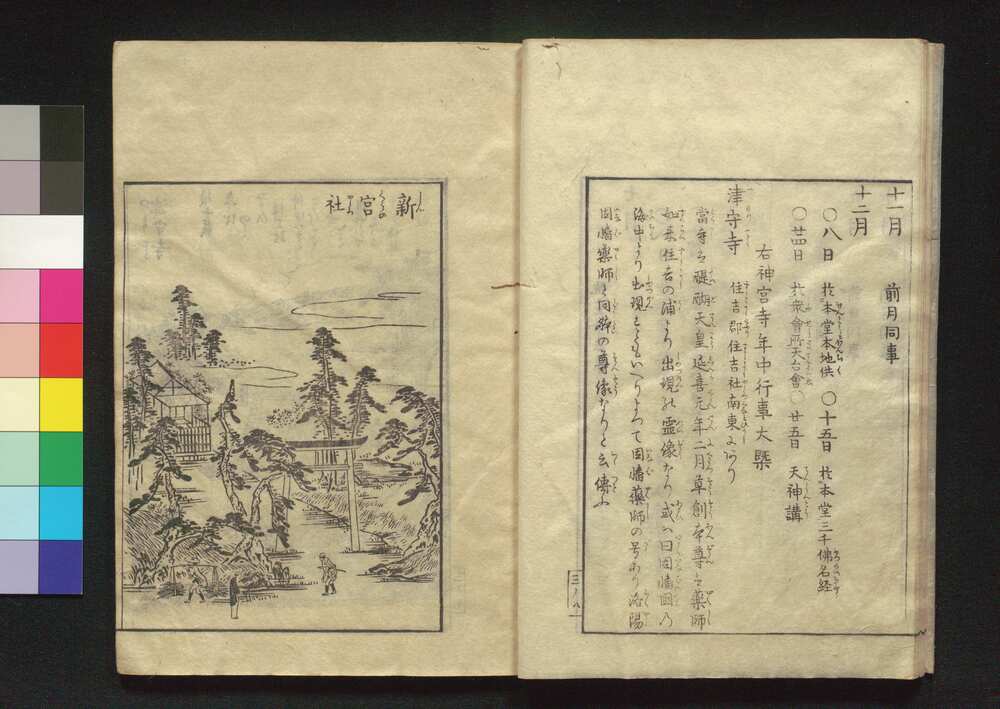 十一月　前月同事
十二月
〇八日　於本堂本地供　〇十五日　於本堂三千佛名経
〇廿四日　於衆會所天台會〇廿五日　天神講
右神宮寺年中行事大槩
津守寺　住吉郡住吉社南東にあり
當寺ハ醍醐天皇延喜元年二月草創本尊ハ薬師
如来住吉の浦より出現の霊像なり或ハ曰因幡國乃
海中より出現ともいへりよつて因幡薬師の号あり洛陽
因幡薬師と同躰の尊像なりと云傳ふ
三ノ八
新宮社